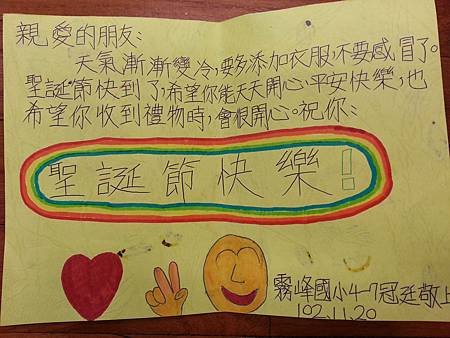 親愛的朋友:
天氣漸漸變冷,要多添加衣服,不要感冒了。
聖誕節快到了,希望你能天天開心,平安快樂,也
希望你收到禮物時,會很開心。祝你:
聖誕節快樂!
霧峰國小4-7冠廷敬上
102.11.20